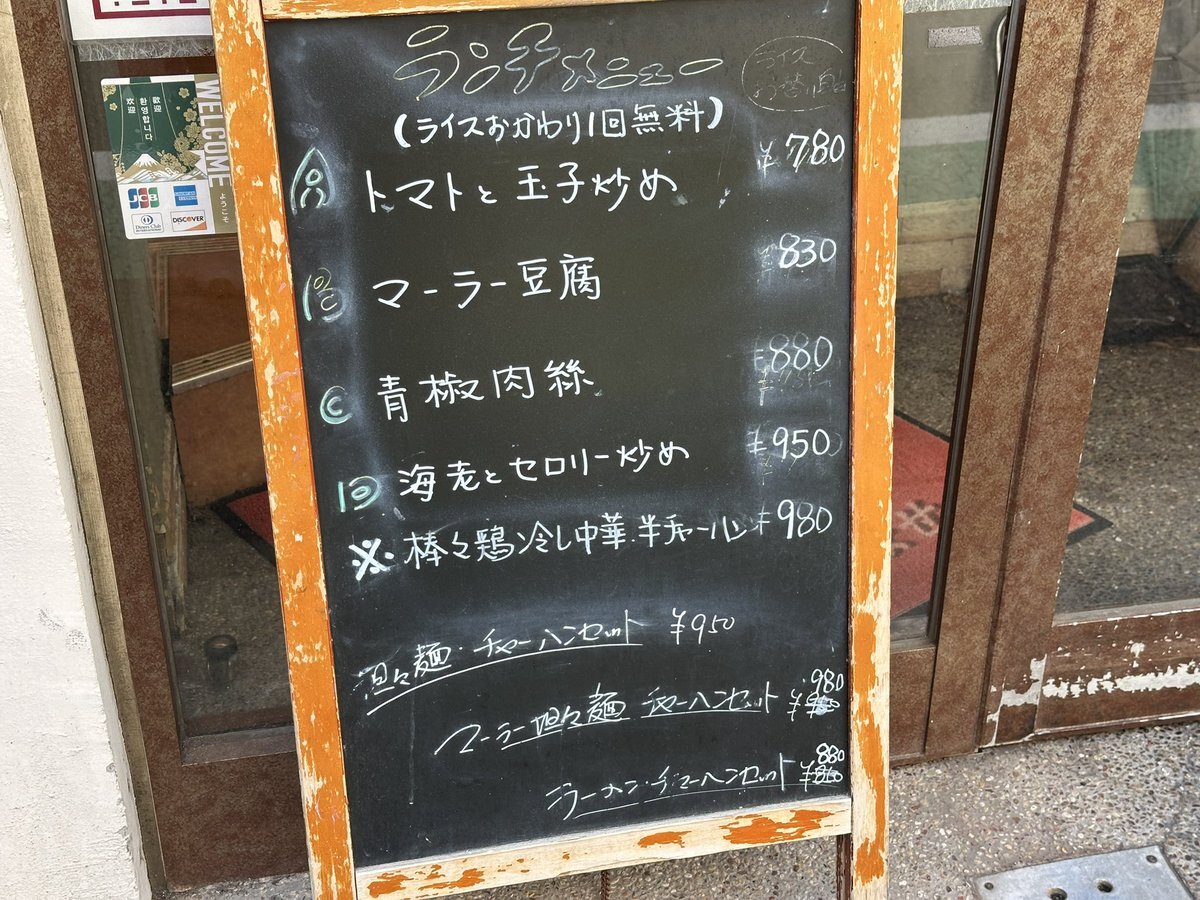 ランチメニュー
ライス
(ライスおかわり1回無料)
A トマトと玉子炒め ¥780
B マーラー豆腐 ¥830
C 青椒肉絲 ¥880
D 海老とセロリー炒め ¥950
※ 棒々鶏冷し中華.半チャーハン ¥980
坦々麺・チャーハンセット ¥950
マーラー坦々麺 チャーハンセット ¥980
ラーメン・チャーハンセット ¥880
WELCOME
ようこそ
歓迎
환영합니다
欢迎
JCB
AMERICAN EXPRESS
Diners Club
INTERNATIONAL
DISCOVER